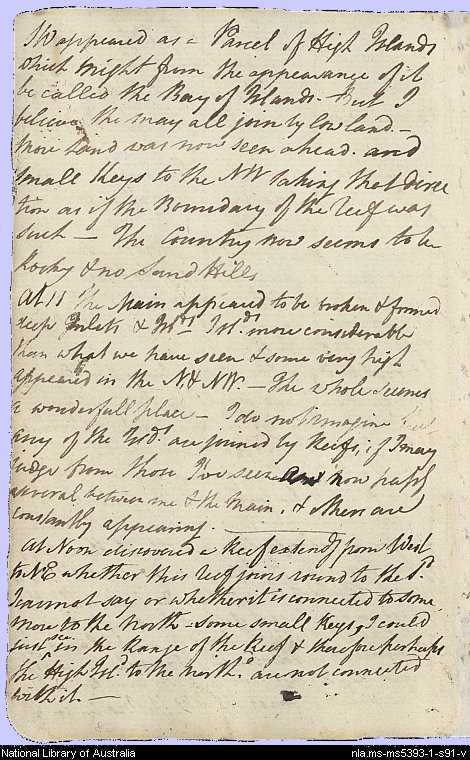 SW appeared as a Parcel of High Islands
which might from the appearance of it
be called the Bay of Islands - But I
believe the may all join by low land -
more Land was now seen ahead. and
small Keys to the NW taking that direc
tion as if the Boundary of the Reef was
such - The Country now seems to be
Rocky & no Sand Hills
At 11 The Main appeared to be broken & formed
deep Inlets & more considerable
than what we have seen & some very high
appeared in the N & NW. - The whole seems
a wonderfull place - I do not imagine
any of the are joined by Reefs; if I may
judge from those I've seen and now pass'g
several between me & the Main, & others are
constantly appearing.
At Noon discovered a Reef extend'g from West
to NE whether this Reef joins round to the
I cannot say or whether it is connected to some
more to the north - some small Keys, I could
just see in the Range of the Reef & therefore perhaps
the High Isl.s to the north.d are not connected
with it -
National Library of Australia
nla.ms-ms5393-1-s91-v